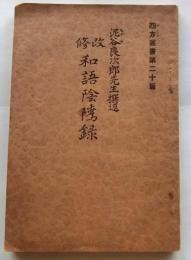 四方叢書第二十篇
泥谷良次郎先生撰述
改修 和語陰隲録